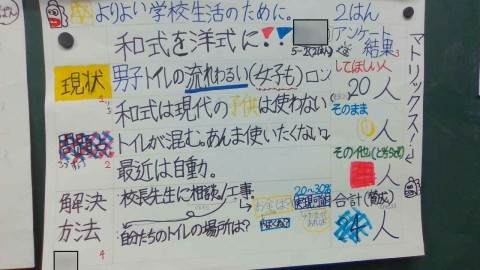 よりよい学校生活のために。
2はん
和式を洋式に!!
アンケート
結果
現状
男子トイレの流れわるい(女子も)
してほしい人
20人
和式は現代の子供は使わない
そのまま
0人
問題点
トイレが混む。あんま使いたくない
最近は自動。
その他(どちらでも)
人
解決
方法
校長先生に相談。工事
お金は?
20〜30万
実現可能
自分たちのトイレの場所は?
合計(賛成)
24人
マトリックス